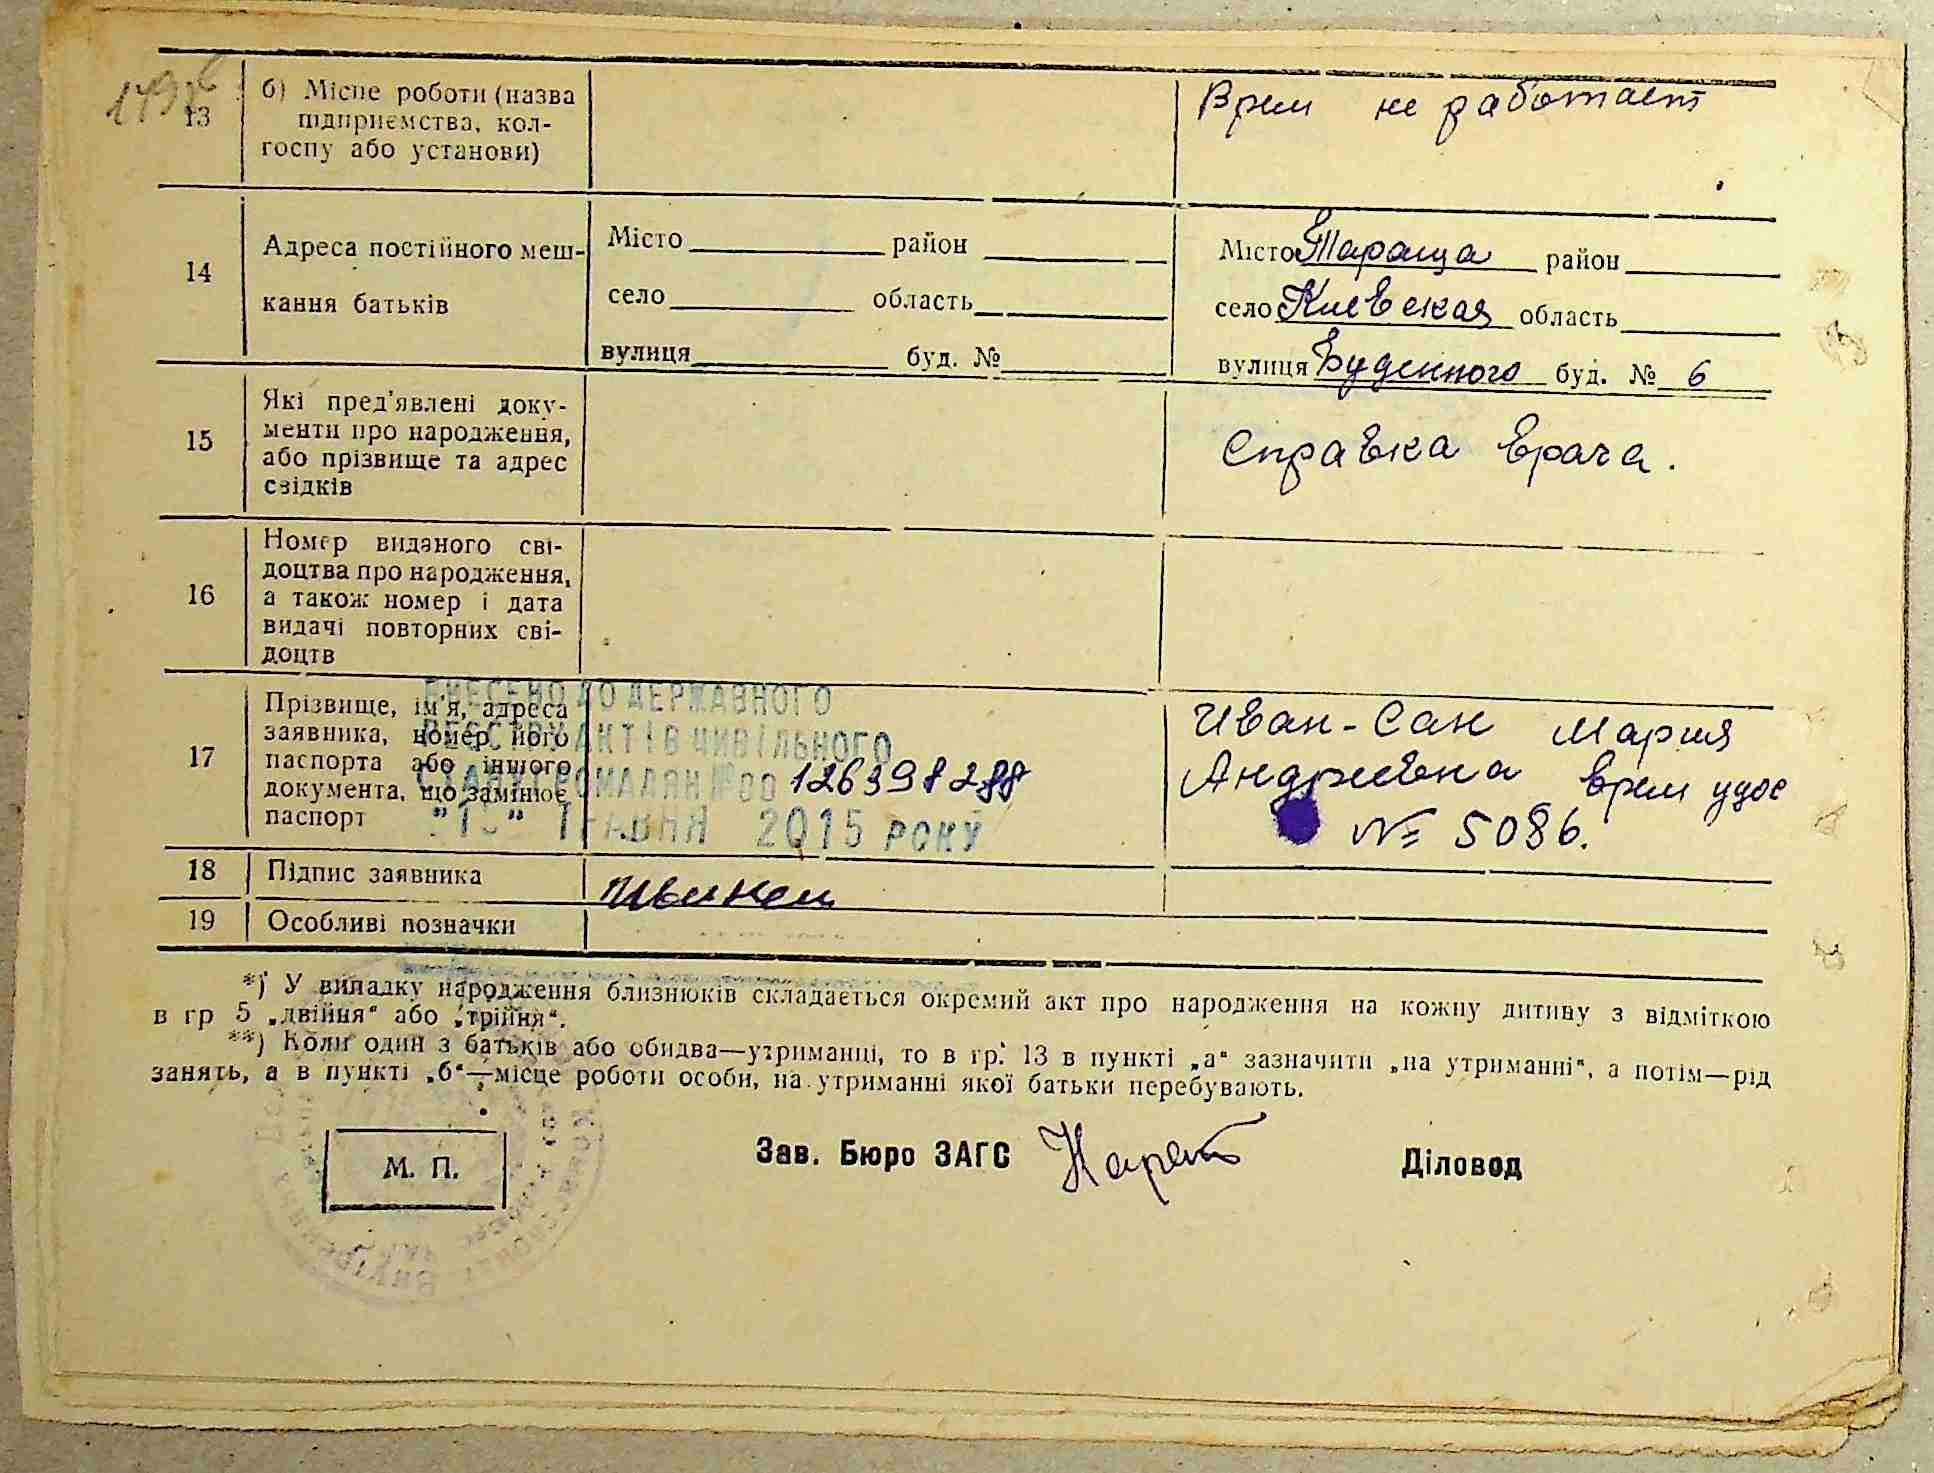 13
б) Місце роботи (назва
підприємства, кол-
госпу або установи)
Врем не работает
14
Адреса постійного меш-
кання батьків
Місто район
село область
вулиця буд. №
Місто Тараща район
село Киевская область
вулиця Буденного буд. № 6
15
Які пред'явлені доку-
менти про народження,
або прізвище та адрес
свідків
Справка врача.
16
Номер виданого сві-
доцтва про народження,
а також номер і дата
видачі повторних сві-
доцтв
17
Прізвище, ім'я, адреса
заявника, номер його
паспорта або іншого
документа, що замінює
паспорт
ВНЕСЕНО ДО ДЕРЖАВНОГО
РЕЄСТРУ АКТІВ ЦИВІЛЬНОГО
СТАНУ ГРОМАДЯН № 00126398288
ТРАВНЯ 2015 РОКУ
Иван-Сан Мария
Андреевна врем удос
№ 5086.
18 Підпис заявника
19 Особливі позначки
*) У випадку народження близнюків складається окремий акт про народження на кожну дитину з відміткою
в гр 5 „двійня“ або „трійня“.
**) Коли один з батьків або обидва—утриманці, то в гр. 13 в пункті „а“ зазначити „на утриманні“, а потім—рід
занять, а в пункті „б“—місце роботи особи, на утриманні якої батьки перебувають.
М. П.
Зав. Бюро ЗАГС
Діловод